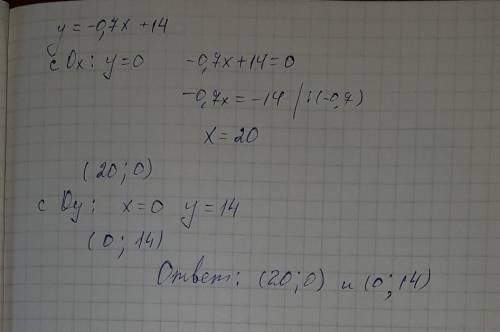 y = -0,7x + 14
с Ox: y=0 -0,7x+14=0
-0,7x = -14 / :(-0,7)
x = 20
(20; 0)
с Oy: x=0 y=14
(0; 14)
Ответ: (20; 0) и (0; 14)